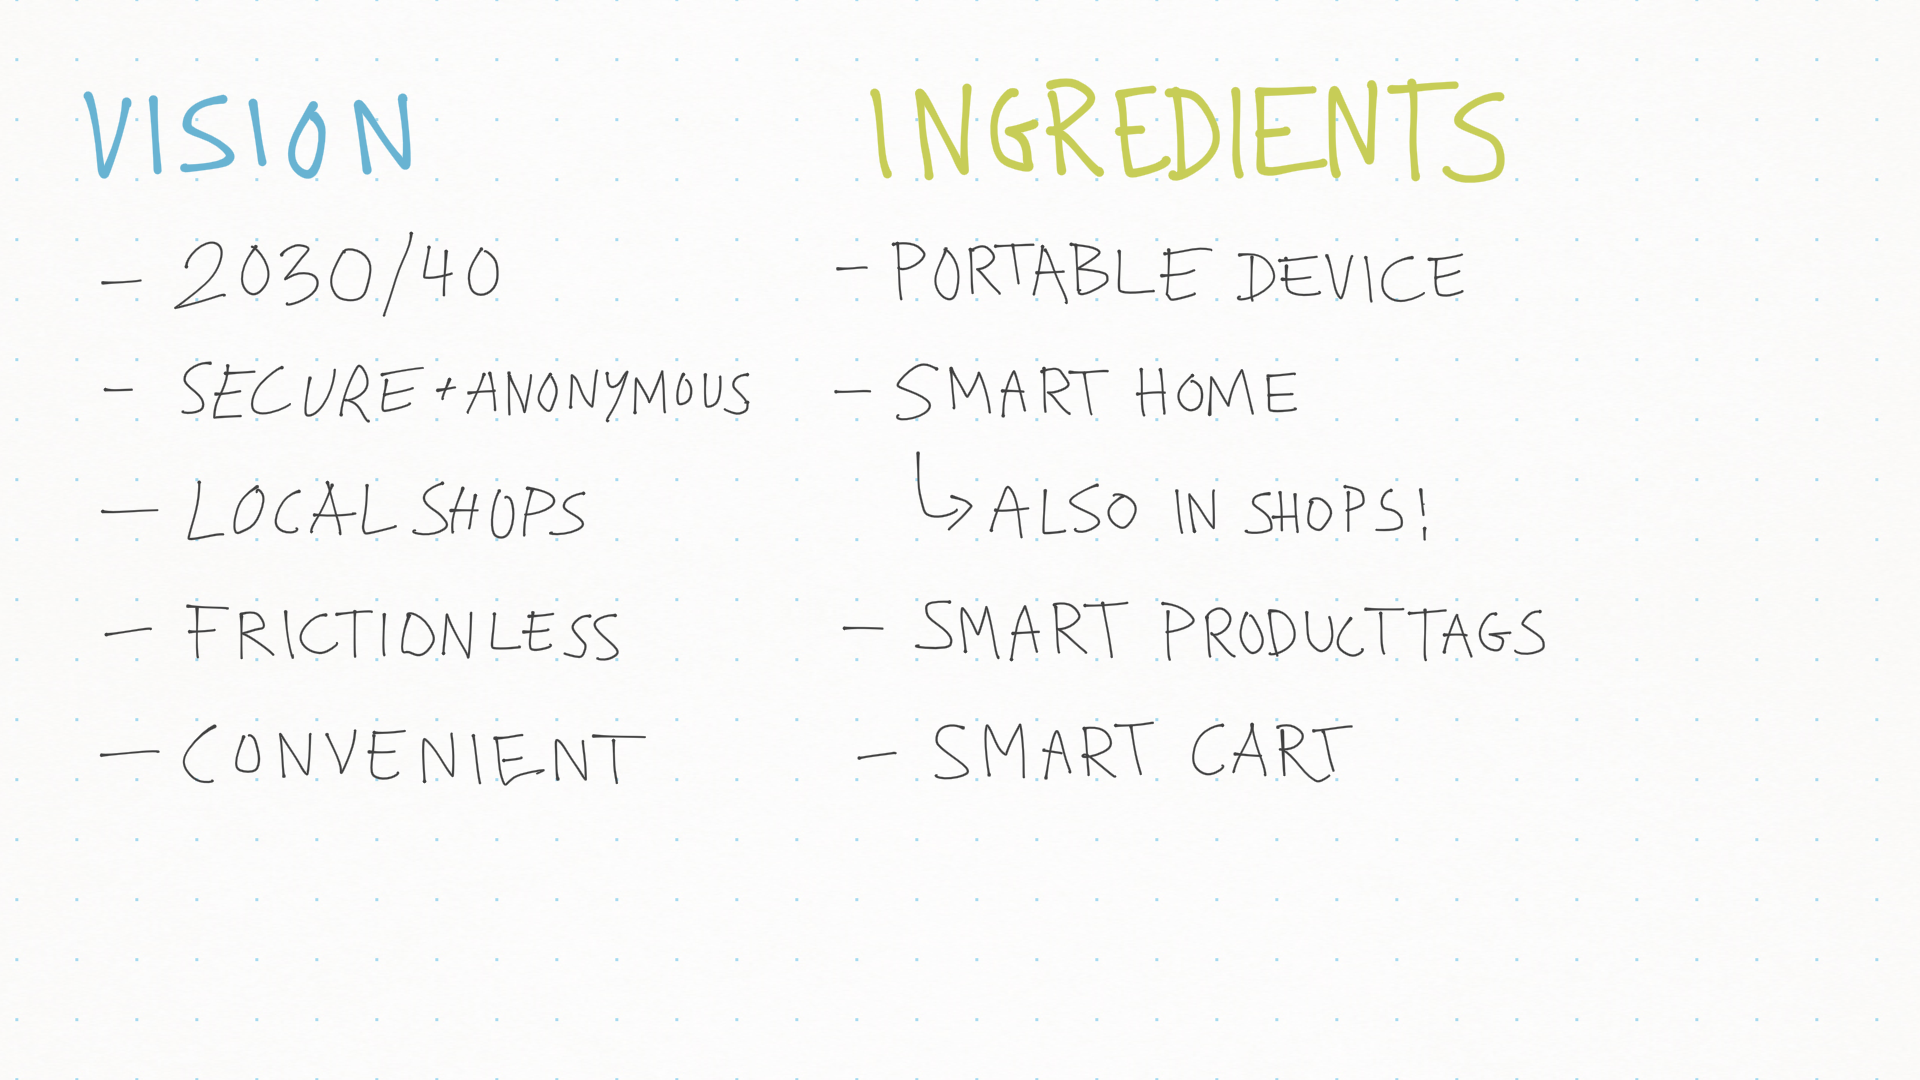 VISION
- 2030/40
- SECURE + ANONYMOUS
- LOCAL SHOPS
- FRICTIONLESS
- CONVENIENT
INGREDIENTS
- PORTABLE DEVICE
- SMART HOME
↳ ALSO IN SHOPS!
- SMART PRODUCTTAGS
- SMART CART